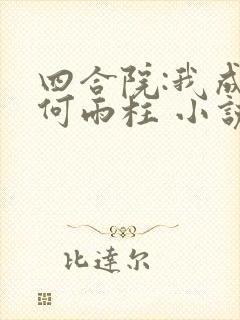 四合院:我成
何雨柱 小説
比達尔